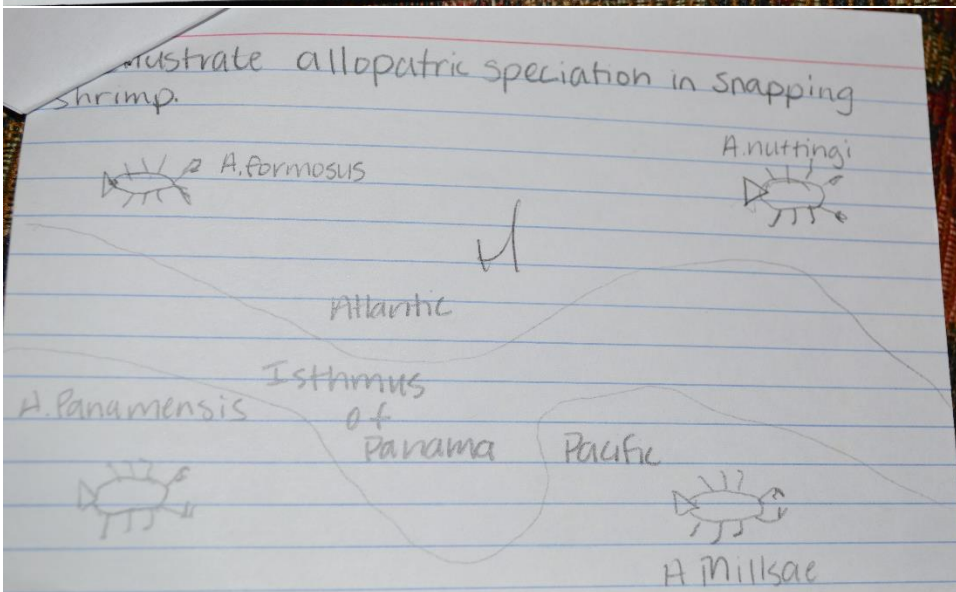 ustrate allopatric speciation in snapping
shrimp.
A.formosus
A.nuttingi
Atlantic
Isthmus
of
Panama
A.Panamensis
Pacific
A Millsae